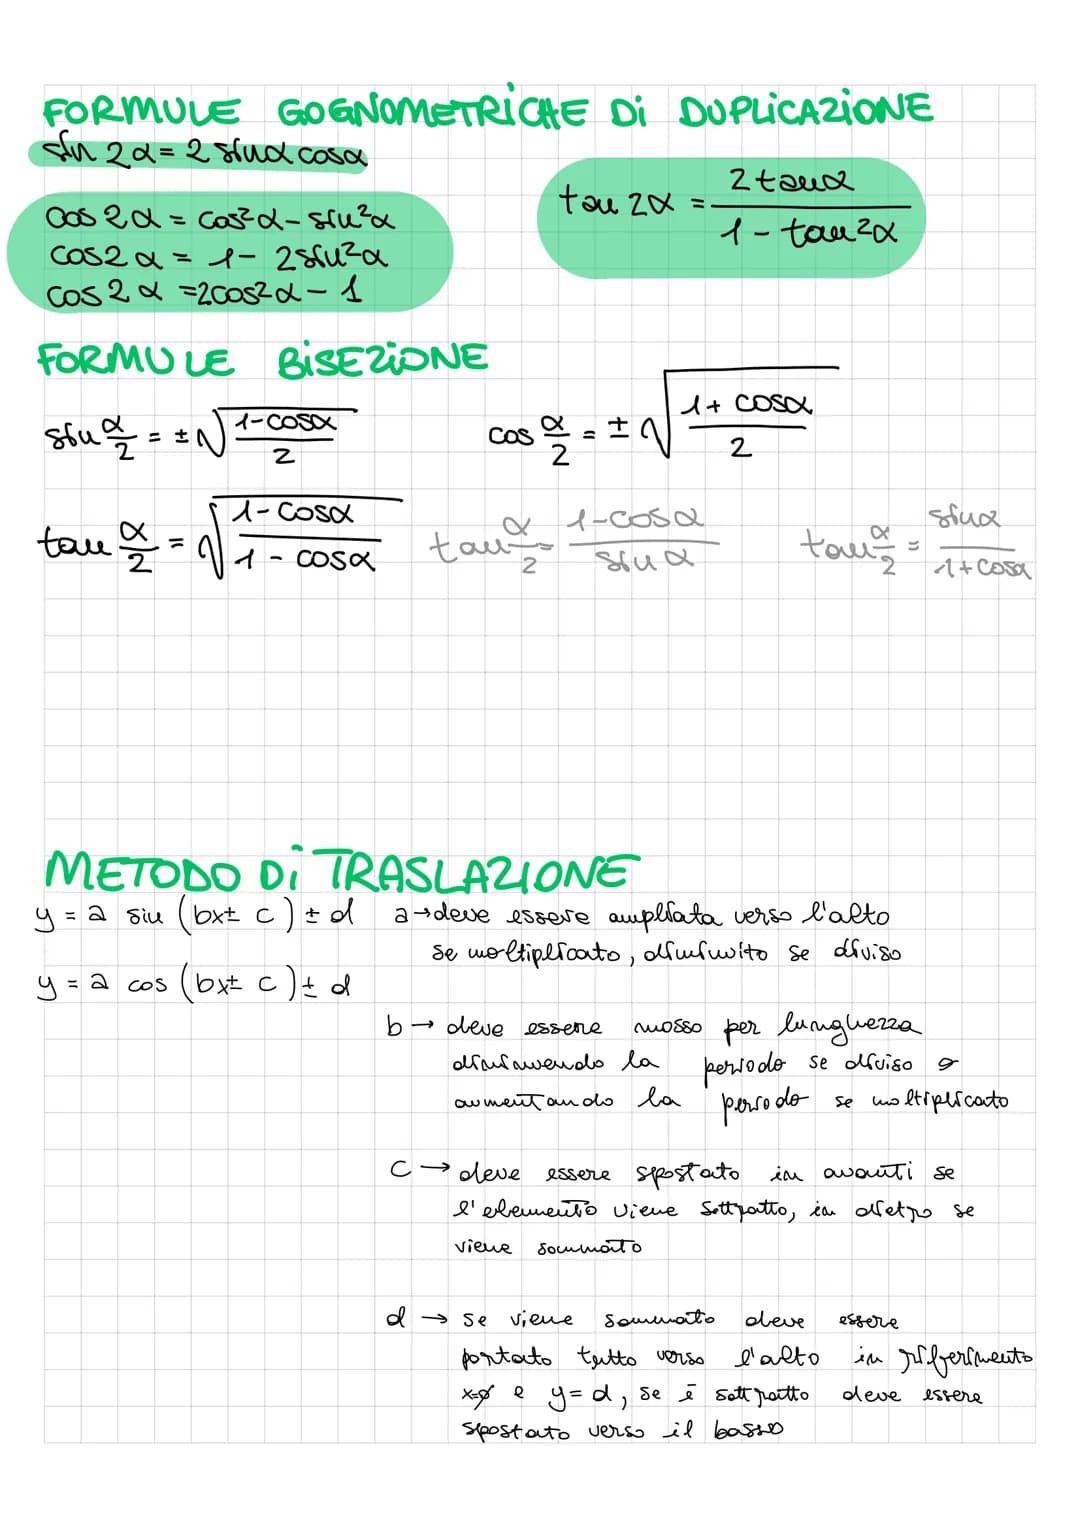 FORMULE GOGNOMETRICHE Di DUPLICAZIONE
sin 2α = 2 sinα cosα
cos 2α = cos²α - sin²α
cos2α = 1 - 2sin²α
cos2α = 2cos²α - 1
tan 2α = 2tanα / 1 - tan²α
FORMULE BiSEZiONE
sin α/2 = ±√1-cosα / 2
cos α/2 = ±√1+ cosα / 2
tan α/2 = √1-cosα / 1 - cosα
tan α/2 = 1-cosα / sin α
tan α/2 = sinα / 1+cosα
METODO Di TRASLAZIONE
y = a sin (bx± c) ± d
y = a cos (bx± c) ± d
a→deve essere ampliata verso l'alto
se moltiplicato, diminuito se diviso
b → deve essere mosso per lunghezza
diminuendo la periodo se diviso o
aumentando la periodo se moltiplicato
c → deve essere spostato in avanti se
l'elemento viene sottratto, in dietro se
viene sommato
d → se viene sommato deve essere
portato tutto verso l'alto in riferimento
x=0 e y=d, se è sottratto deve essere
spostato verso il basso